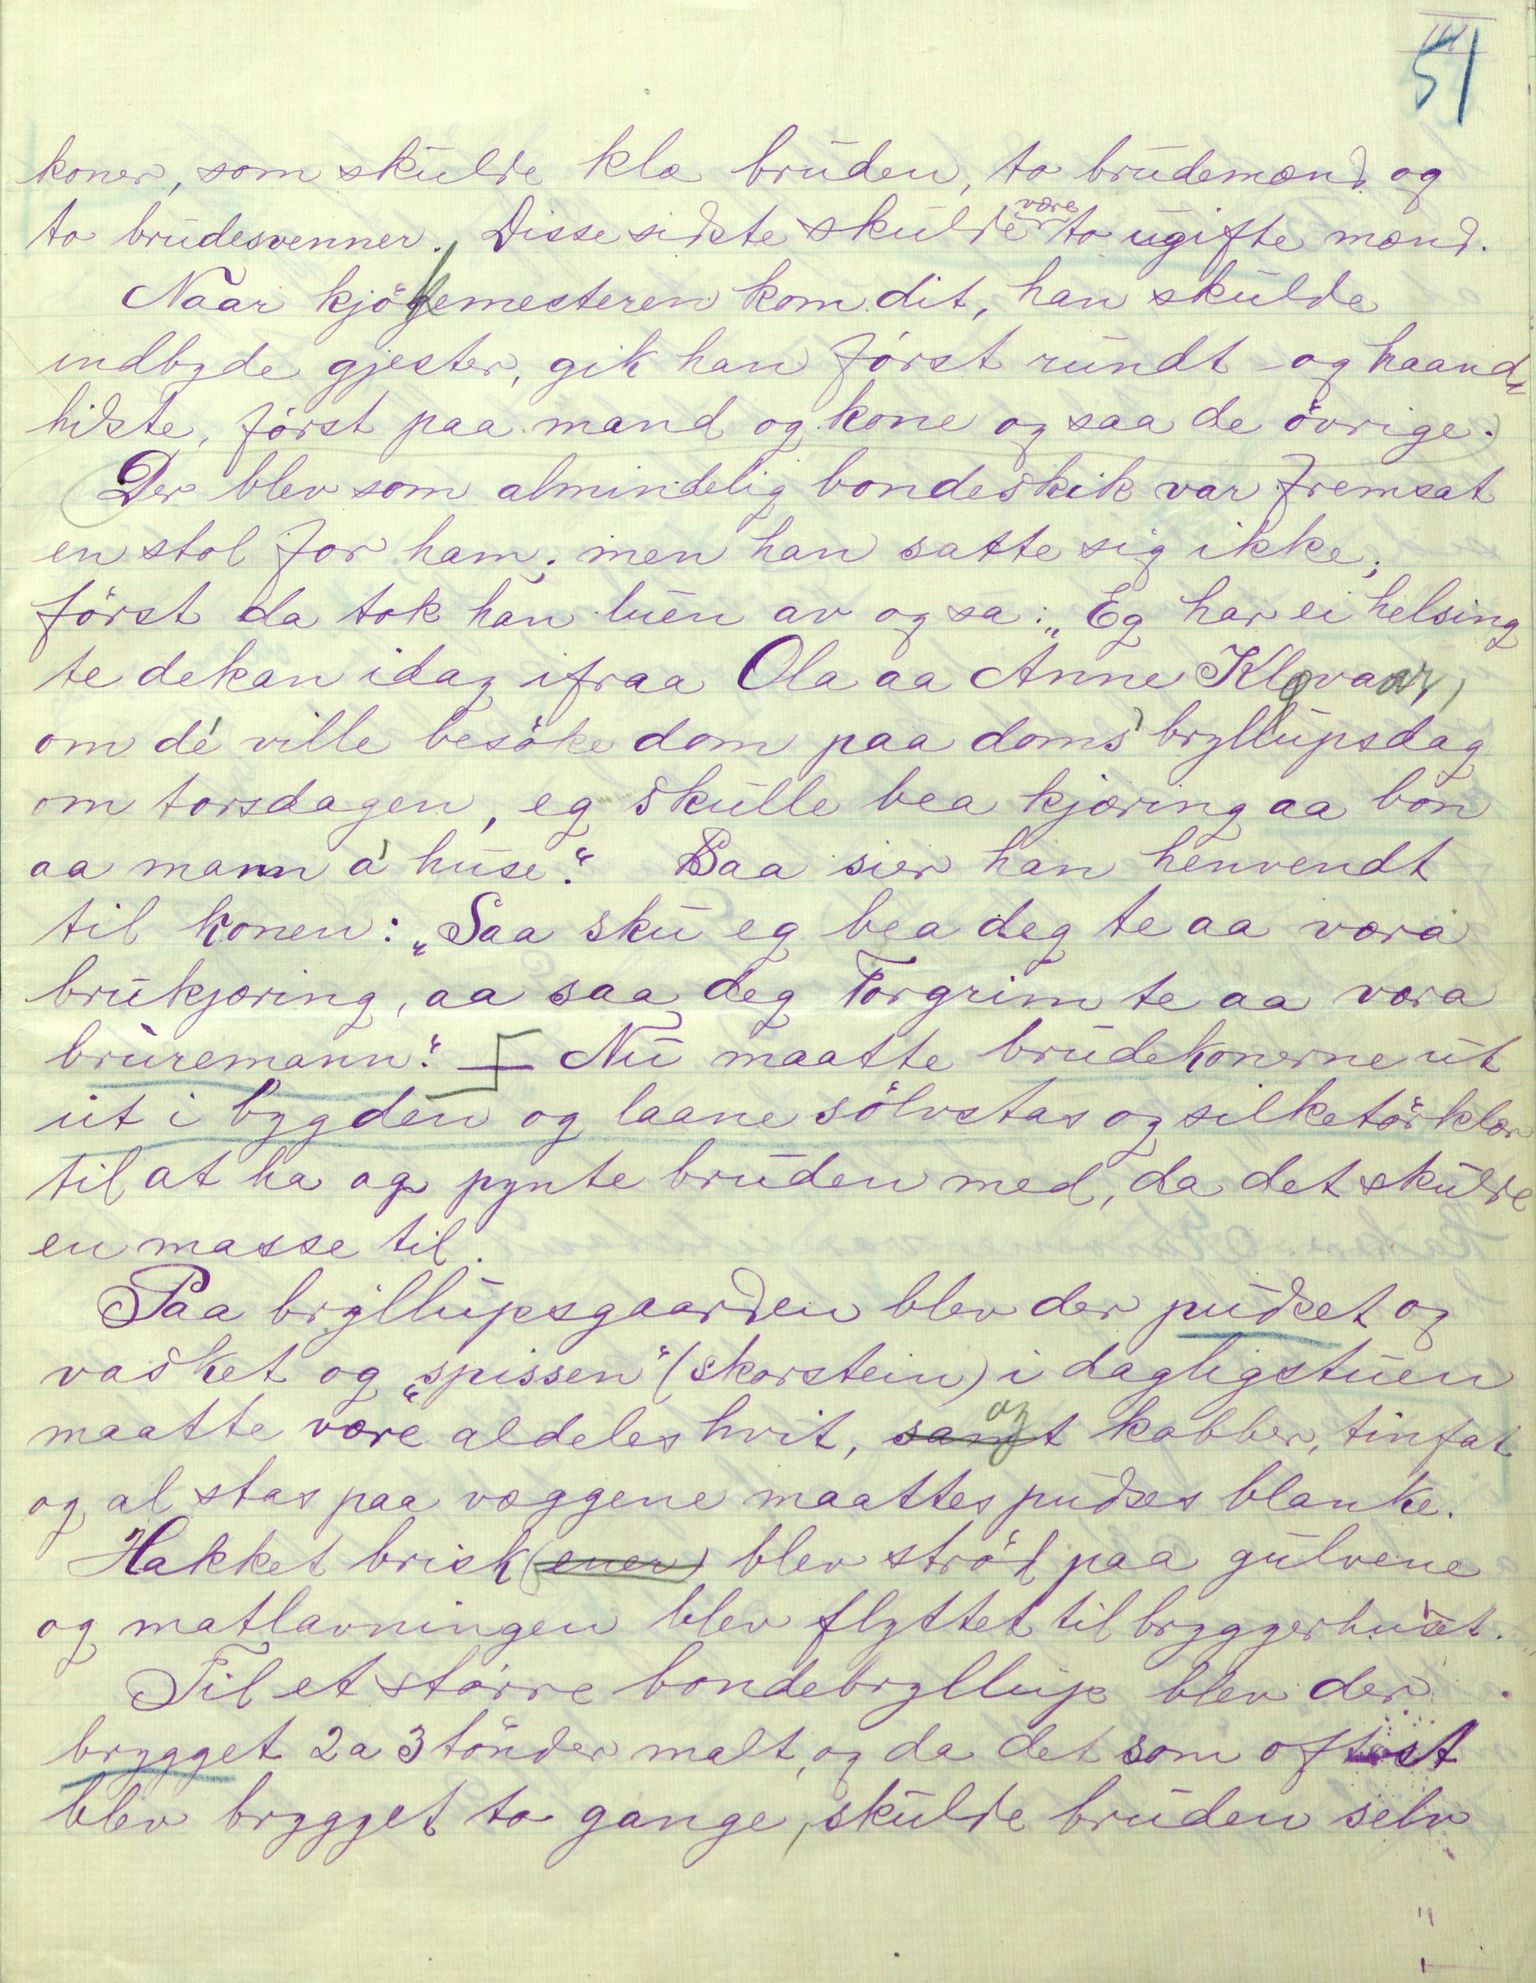 51
koner, som skulde klæ bruden, to brudemænd og
to brudesvenner. Disse sidste skulde være to ugifte mænd.
Naar kjökemesteren kom dit, han skulde
indbyde gjester, gik han først rundt og haand=
hilste, først paa mand og kone og saa de övrige.
Der blev som almindelig bondeskik var fremsat
en stol for ham; men han satte sig ikke,
först da tok han luen av og sa: „Eg har ei helsing
te dekan idag ifraa Ola aa Anne Klovaar,
om dé ville besöke dom paa doms bryllupsdag
om torsdagen, eg skulle bea kjæring aa bon
aa mann á huse." Saa sier han henvendt
til konen: „Saa sku eg bea deg te aa væra
brukjæring, aa saa deg Torgrim te aa væra
bruremann." Nu maatte brudekonerne ut
ut i bygden og laane sölvstas og silketörklær
til at ha og pynte bruden med, da det skulde
en masse til.
Paa bryllupsgaarden blev der pudset og
vasket og „spissen" (skorstein) i dagligstuen
maatte være aldeles hvit, samt og kobber, tinfat
og al stas paa væggene maattes pudses blanke.
Hakket brisk (ener) blev ströd paa gulvene
og matlavningen blev flyttet til bryggerhuset.
Til et större bondebryllup blev der
brygget 2 a 3 tönder malt, og da det som oftest
blev brygget to gange, skulde bruden selv